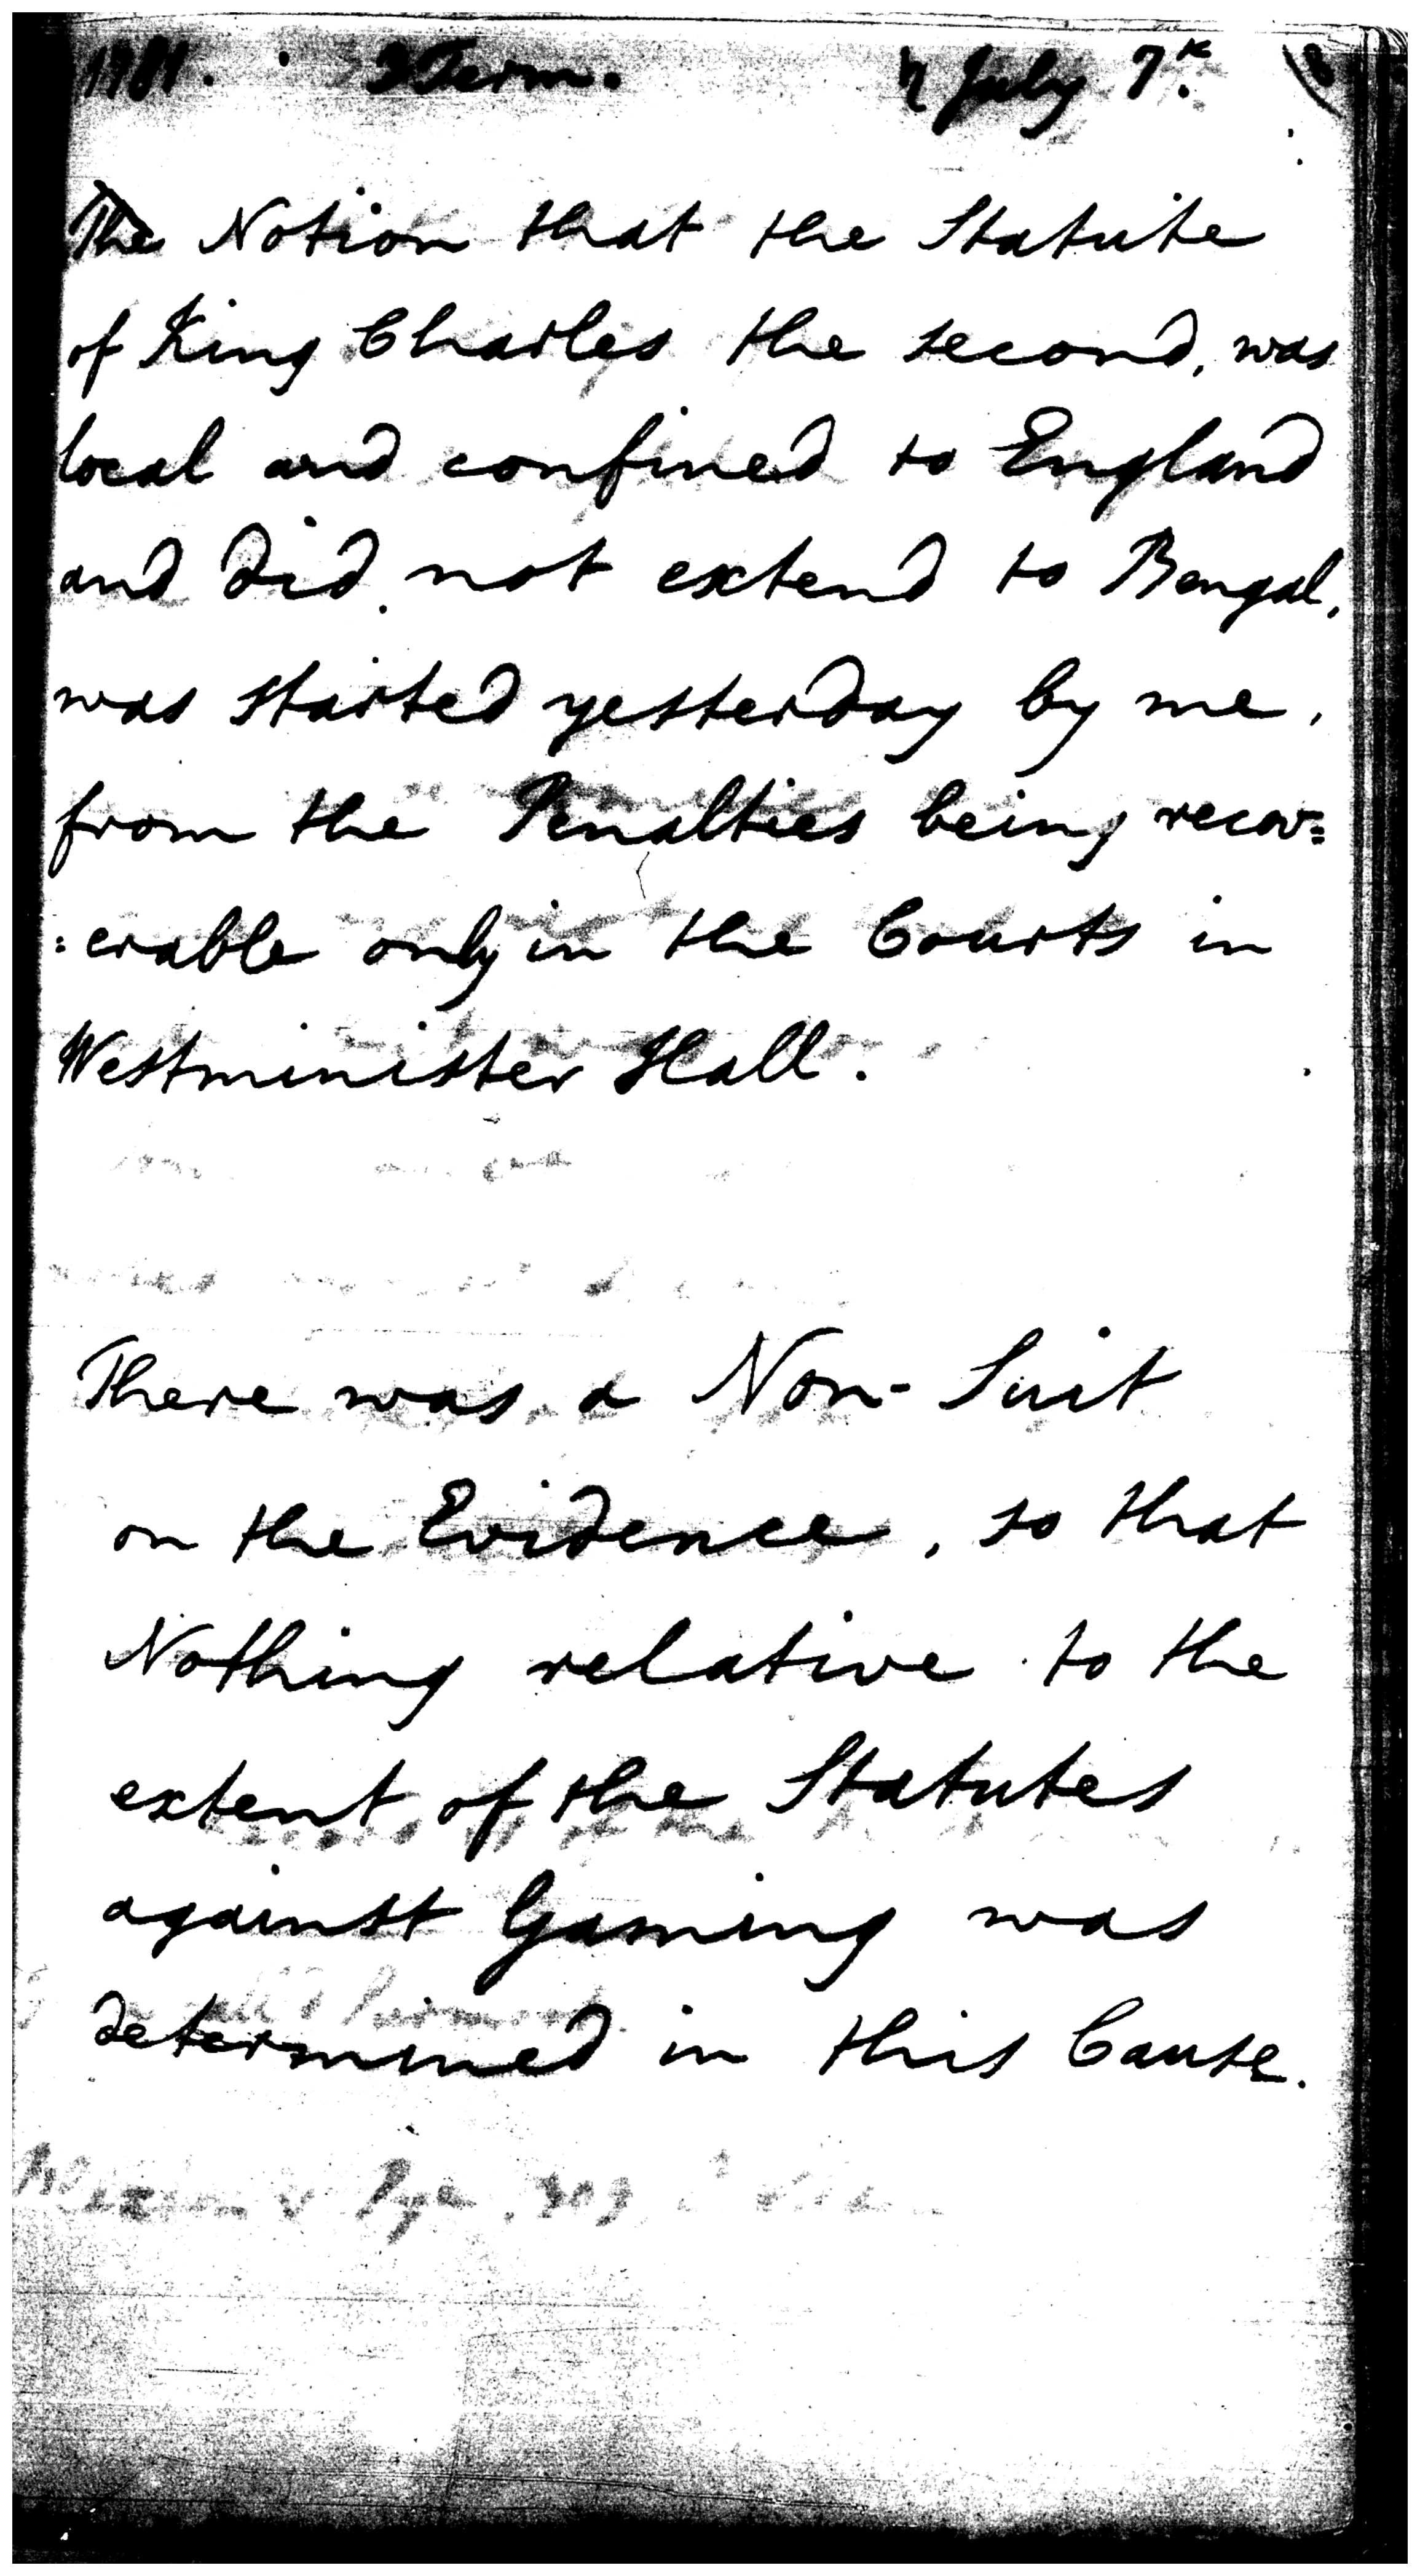 1781. 3 Term. ♄ July 7th.
The Notion that the Statute
of King Charles the second, was
local and confined to England
and did not extend to Bengal,
was started yesterday by me,
from the Penalties being recov=
=erable only in the Courts in
Westminister Hall.
There was a Non-Suit
on the Evidence, so that
Nothing relative to the
extent of the Statutes
against Gaming was
determined in this Cause.